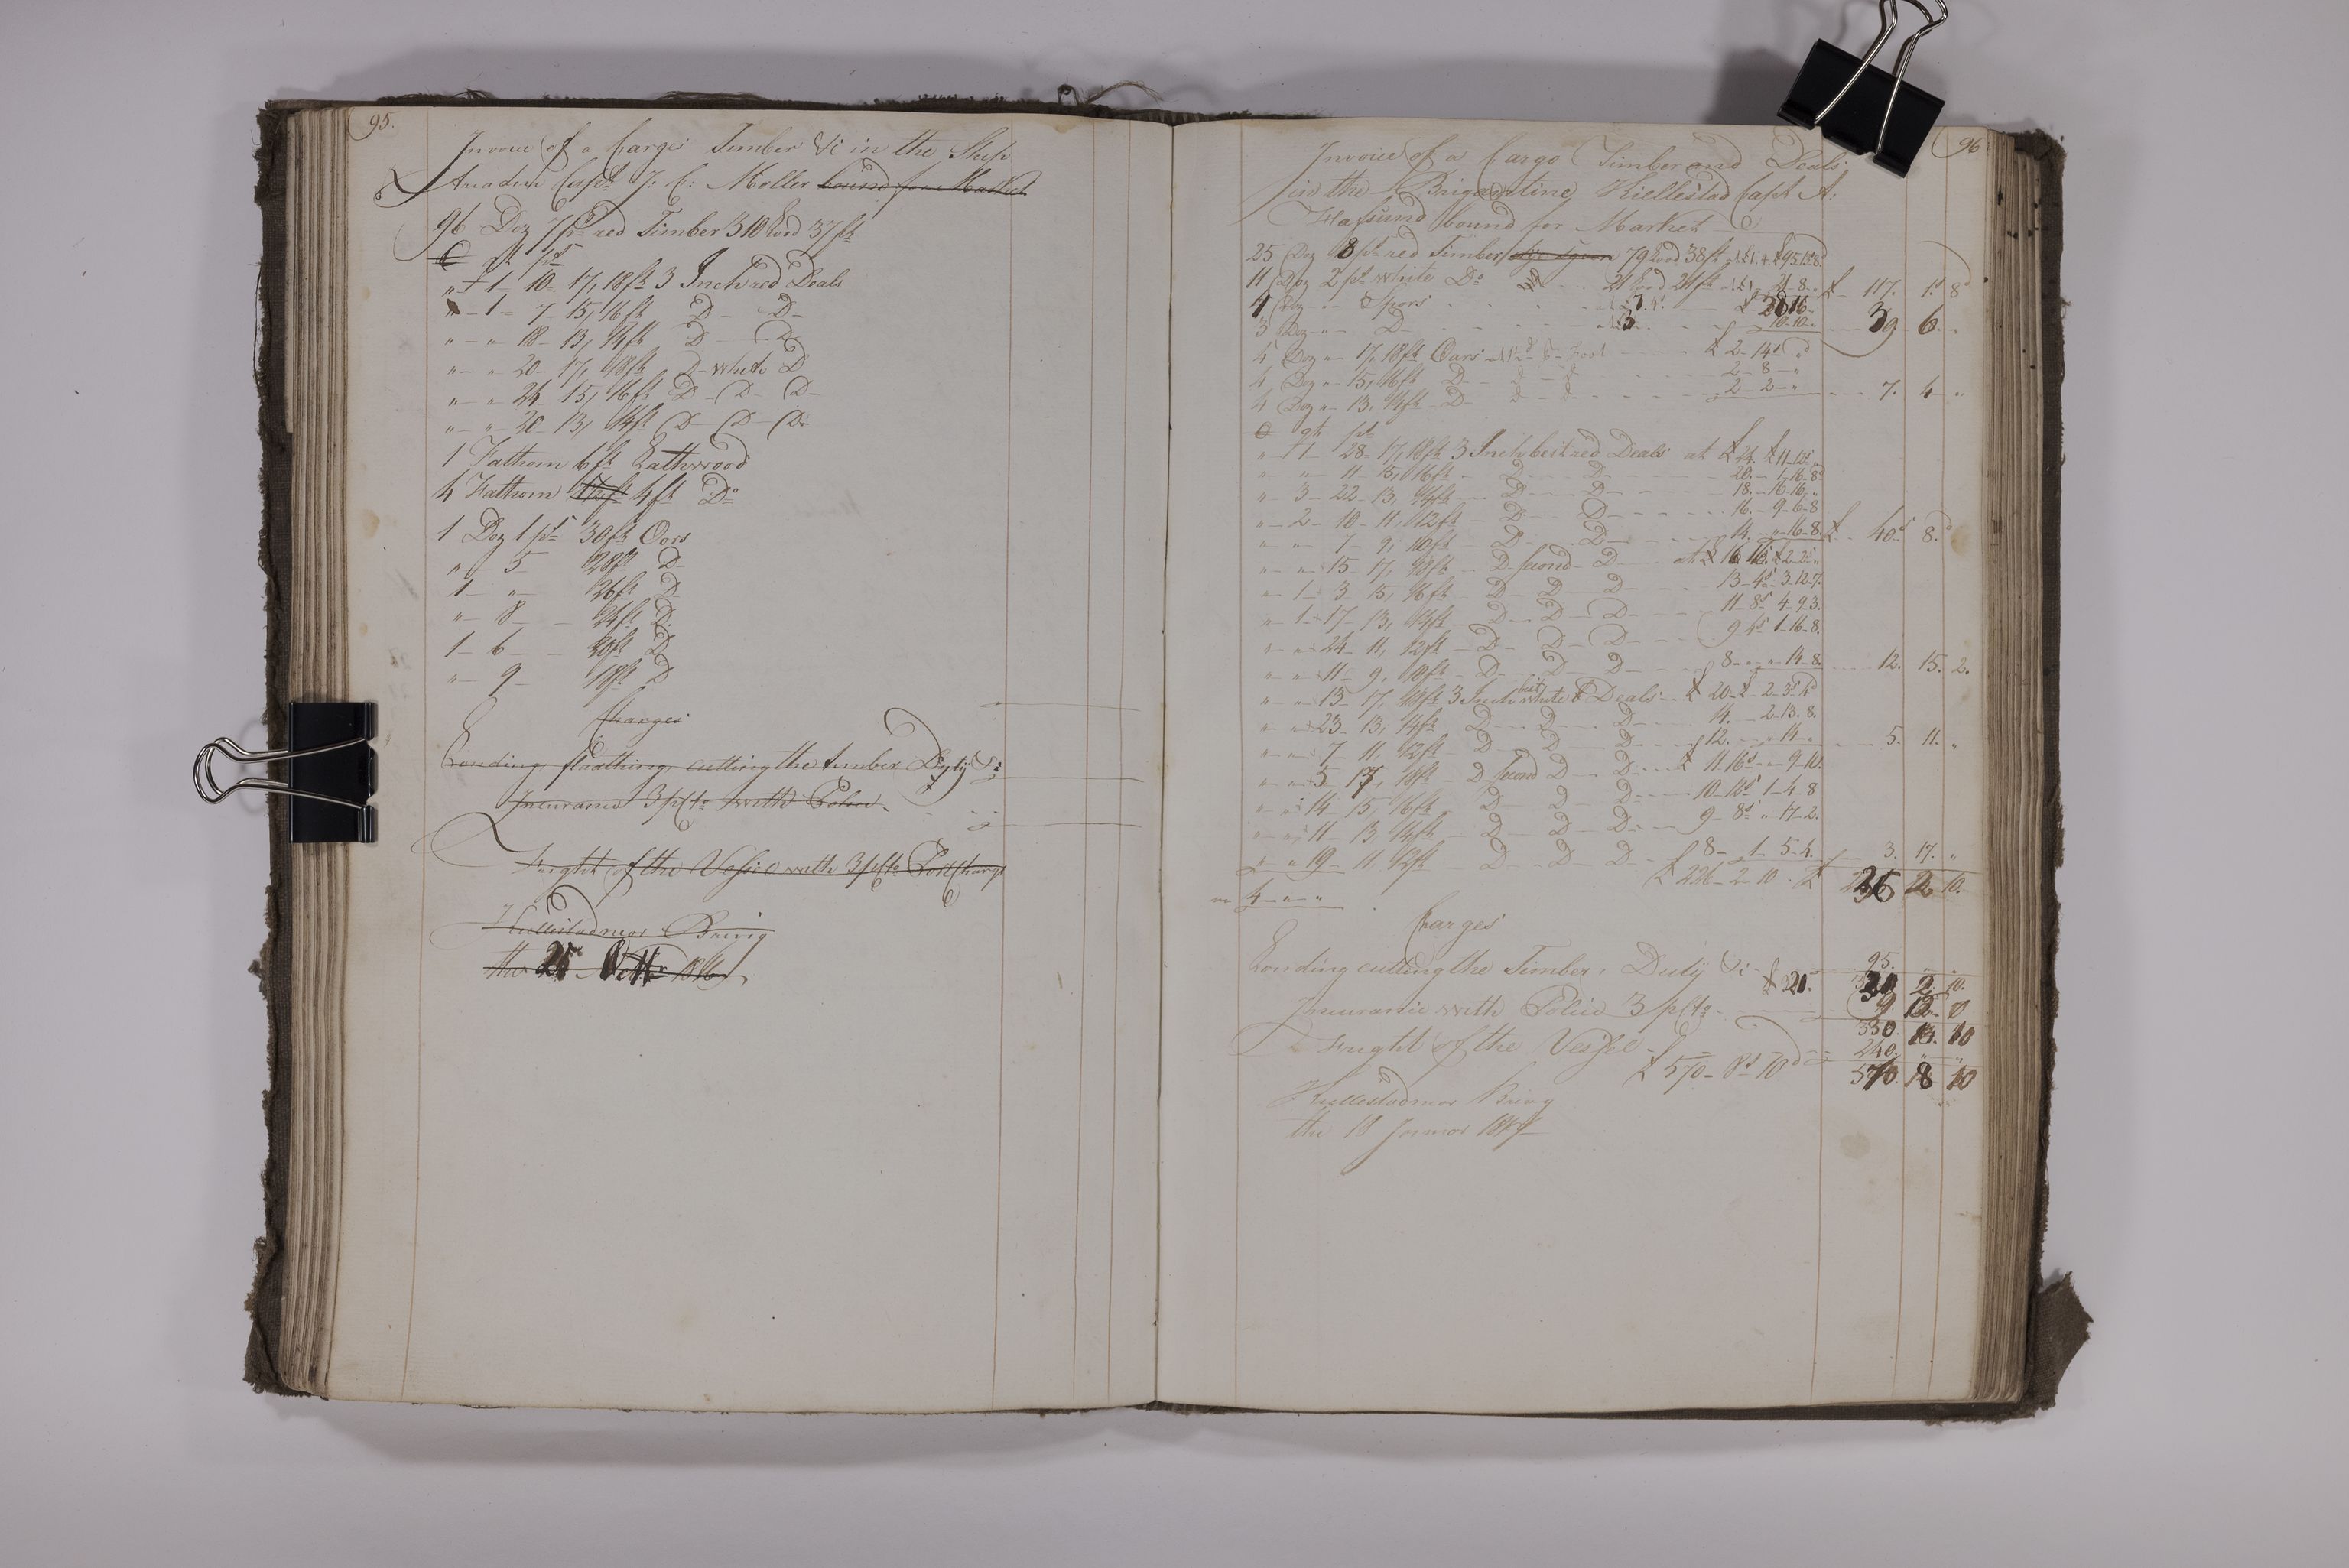 95.
Invoice of a Cargo Timber &c in the Ship
Ariadne Capt J: C: Møller bound for Market
96 Doz 7 ps red Timber 310 Load 37 ft
C qt ps
" 1 - 10 - 17, 18 ft 3 Inch red Deals
" - 1 - 7 - 15, 16 ft D - D -
" - " 18 - 13, 14 ft D - D
" - " 20 - 17, 18 ft D - white D
" - " 24 - 15, 16 ft D - D - D -
" - " 20 - 13, 14 ft D - D - D -
1 Fathom 6 ft Lathwood
4 Fathom 4 ft Do
1 Doz 1 ps 30 ft Oars
" - 5 28 ft D
1 - " - 26 ft D
" - 8 - 24 ft D
1 - 6 - 20 ft D
" - 9 - 18 ft D
Charges
Loading, cutting the timber Duty &c
Insurance 3 pCto with Police
Freight of the Vessel with 3 pCto Port Charge
Kiellestadmoe Brevig
the 25
96
Invoice of a Cargo Timber and Deals
in the Brigantine Kiellestad Capt A:
Hafsund bound for Market
25 Doz 8 ps red Timber 79 Load 38 ft at £1.4 £95.15.8
11 Doz 2 ps white Do 21 Load 21 ft at £1. 21-8. £ 117. 1s 8d
4 Doz - " Spars £ 28 16
3 Doz - " D 10-10 39 6 -
4 Doz " 17, 18 ft Oars Foot £ 2-14s "d
4 Doz " 15, 16 ft D 2-8-"
4 Doz " 13, 14 ft D 2-2-" 7. 4 "
C qt ps
" - 1 - 28 - 17, 18 ft 3 Inch best red Deals at £ 24. £ 11-12s
" - " 11 - 15, 16 ft D D 20. - 4,16-8d
" - 3 - 22 - 13, 14 ft D D 18. - 16-16, "
" - 2 - 10 - 11, 12 ft D D 16. - 9-6-8
" - " 7 - 9, 10 ft D D 14. " 16-8. £ 40s 8.d
" - " 15 - 17, 18 ft D second D at £ 16 16s £ 2-2s "
" - 1 - 3 15, 16 ft D D D 13-4s 3-12-7.
" - 1 - 17 - 13, 14 ft D D D 11-8s 4-9-3.
" - " 24 - 11, 12 ft D D D 9-4s 1-16-8.
" - " 11 - 9, 10 ft D D D 8- " 14-8. 12. 15. 2.
" - " 13 - 17, 18 ft 3 Inch best white Deals £ 20 £ 2-3s 4d
" - " 23 - 13, 14 ft D D D 14. 2-13.8.
" - " 7 - 11 12 ft D D D 12. " 14 " 5. 11. "
" - " 5 17, 18 ft D second D D £ 11 16s " 9-10.
" - " 14 15, 16 ft D D D 10-12s 1-4-8
" - " 11 - 13 14 ft D D D 9-8s " 17-2.
" - " 19 - 11 12 ft D D D £ 8- 1-5-4. 3. 17. "
£ 226-2-10. £ 226 2 10.
4 - " - "
Charges
Loading cutting the Timber, Duty &c £ 21. 95.
2 10.
Insurance with Police 3 pCto 9
330. 10
Freight of the Vessel 240. " "
£ 570-8s 10d 570 8 10
Kiellestadmoe Brevig
the 18